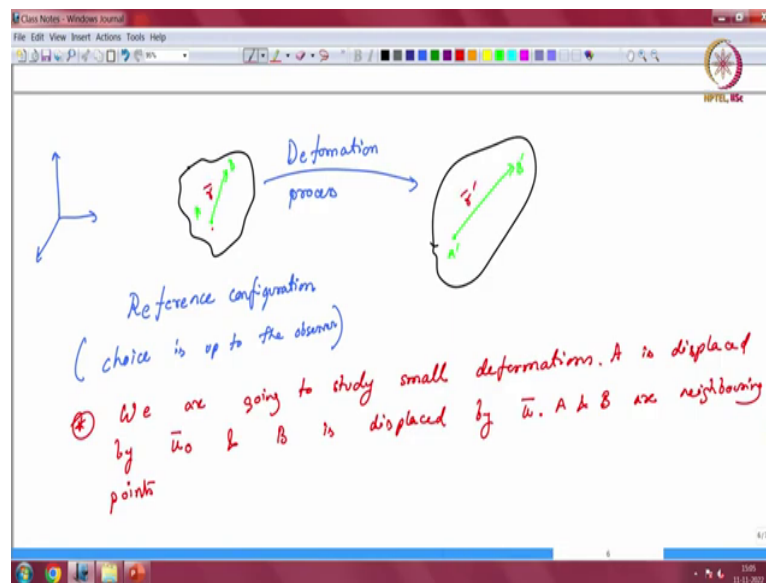 Class Notes - Windows Journal
File Edit View Insert Actions Tools Help
NPTEL, IISc
Defomation
proces
A r̄ B
A' r̄' B'
Reference configuration
(choice is up to the observer)
* We are going to study small deformations. A is displaced
by ū₀ & B is displaced by ū. A & B are neighbouring
points
6
15:05
11-11-2022